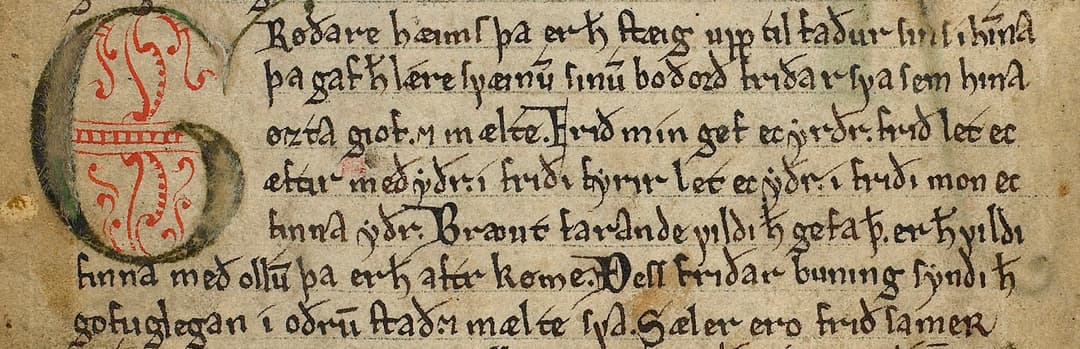 Grøðare hæims þa er h̅ steig upp til faður sins i hīna
þa gaf h̅ lære svæinū sinū boðorð friðar sva sem hina
ozta giof. ⁊ mælte. Frið min gef ec yðr. frið let ec
æftir með yðr. i friði fyrir let ec yðr. i friði mon ec
finna yðr. Braut farande vildi h̅ gefa þ̅. er h̅ vildi
finna með ollū þa er h̅ aftr køme. Þess friðar buning syndi h̅
gofuglegan i oðrū stað. ⁊ mælte sva. Sæler ero friðsamer